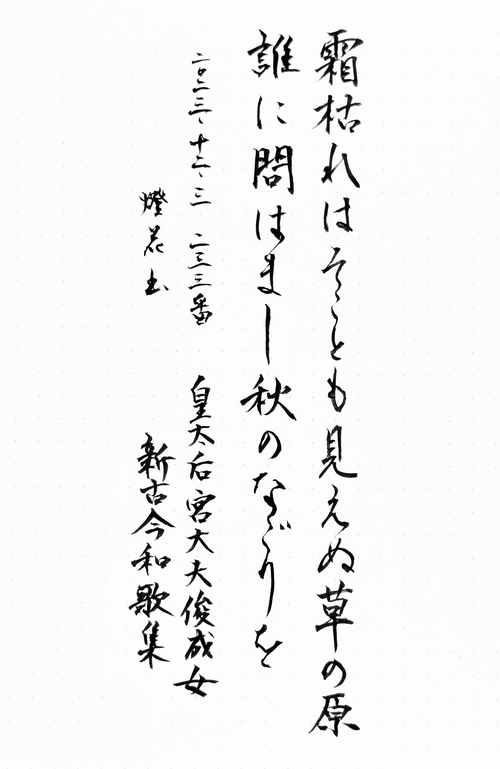 霜枯れはそことも見えぬ草の原
誰に問はまし秋のなごりを
皇太后宮大夫俊成女
新古今和歌集
二〇二三、十二、三 二三三番
燈花書